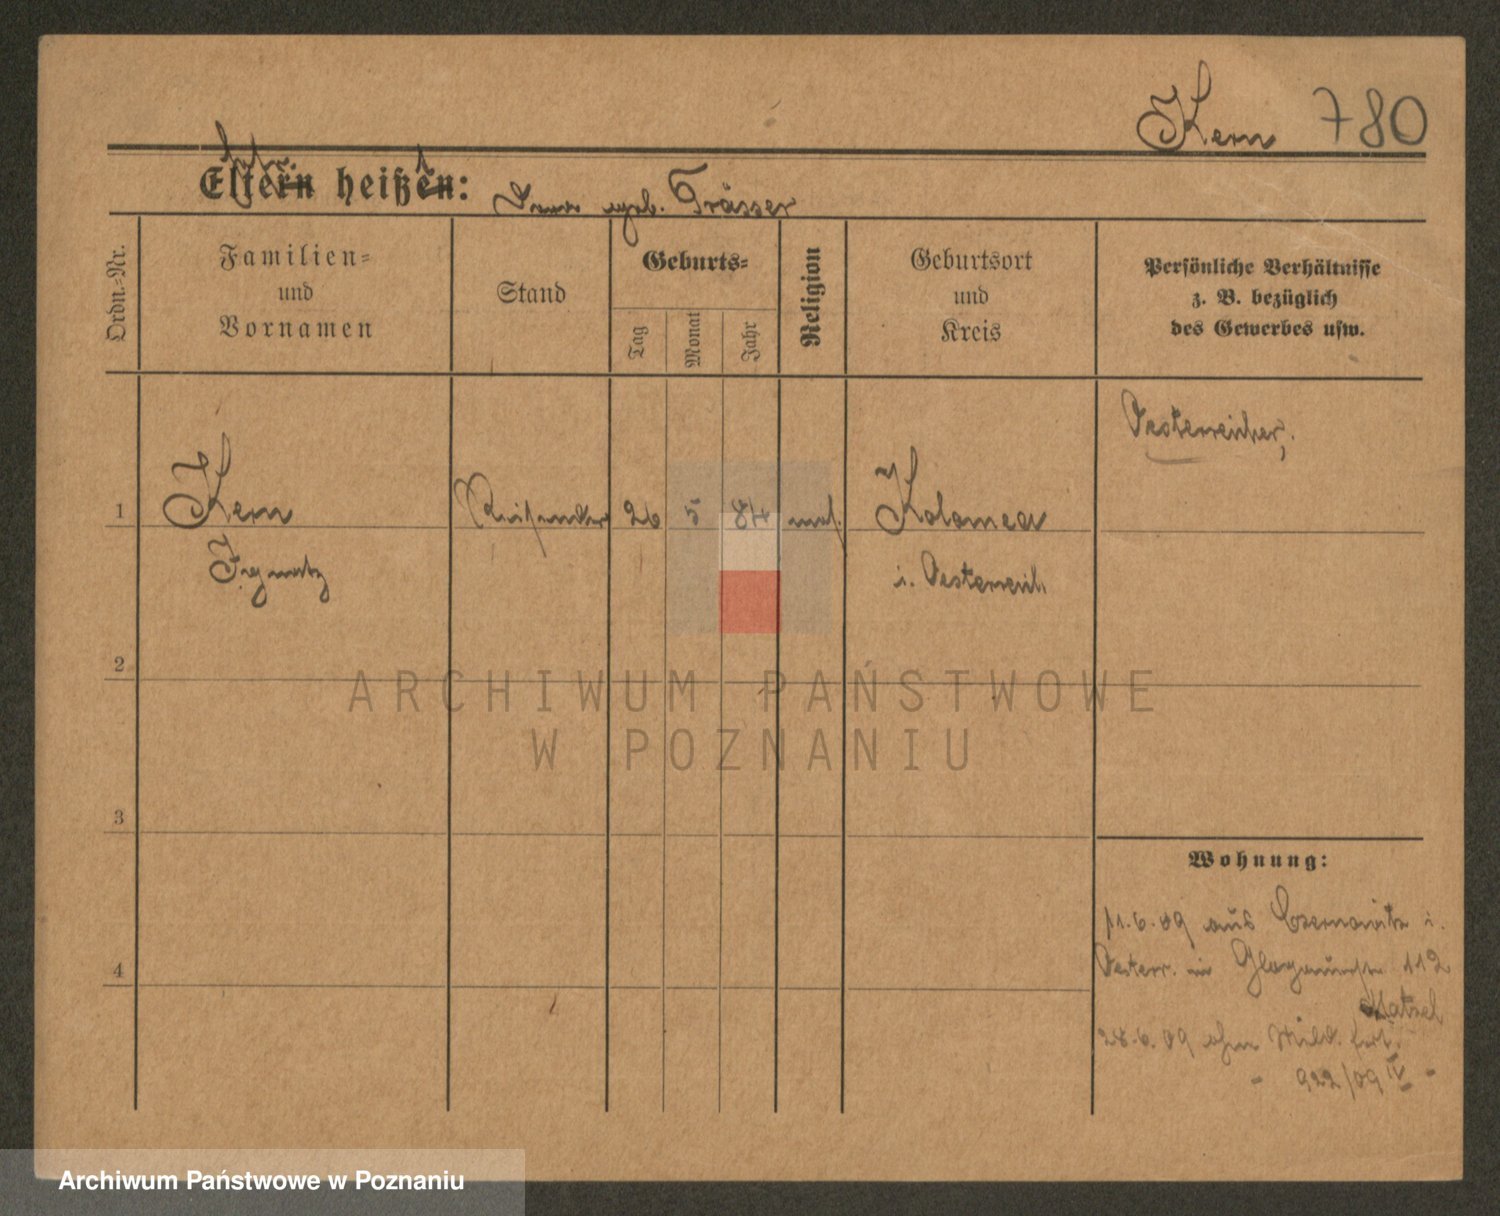 Kern 780
Eltern heißen:
geb. Trässer
Ordn.=Nr.
Familien=
und
Vornamen
Stand
Geburts=
Tag
Monat
Jahr
Religion
Geburtsort
und
Kreis
Persönliche Verhältnisse
z. B. bezüglich
des Gewerbes usw.
Oesterreicher,
1 Kern Reisender 26 5 84 mos. Kolomea
Ignatz i. Oesterreich
2
ARCHIWUM PAŃSTWOWE
W POZNANIU
3
Wohnung:
11.6.09 aus Czernowitz i.
Oesterr. in Glogauerstr. 112
28.6.09 ohne Meld. fort.
922/09 IV
4
Archiwum Państwowe w Poznaniu